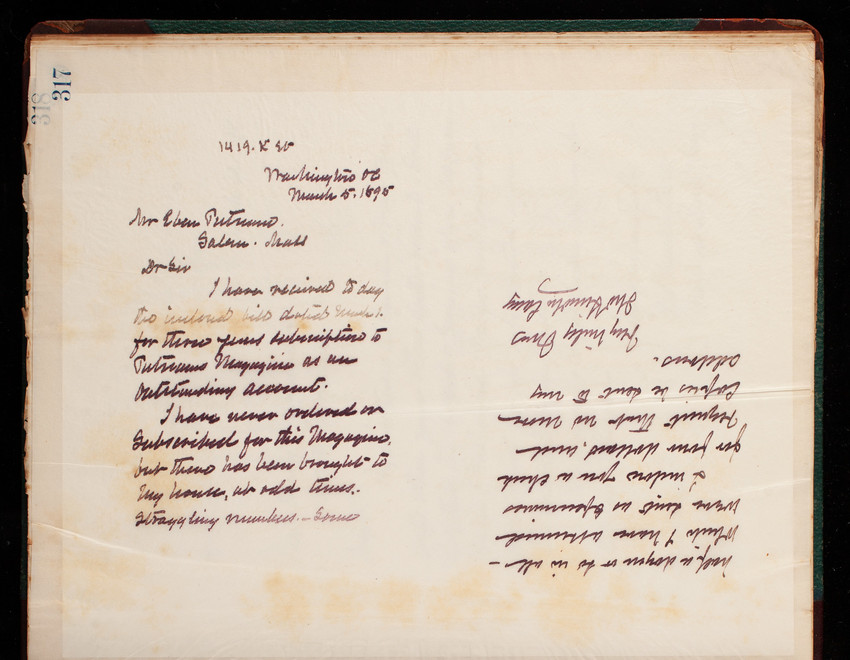 317
318
1419. K St
Washington DC
March 5. 1895
Mr Eben Putnam.
Salem. Mass
Dr Sir
I have received to day
the inclosed bill dated March 1.
for three years subscription to
Putnams Magazine as an
outstanding account.
I have never ordered or
Subscribed for this Magazine,
but there has been brought to
my house, at odd times,
Straggling numbers. - Some
half a dozen or so in all -
which I have
were sent as specimens
I inclose you a check
for four dollars, and
request that no more
Copies be sent to my
address.
Very truly Yours
Thos Lincoln Casey